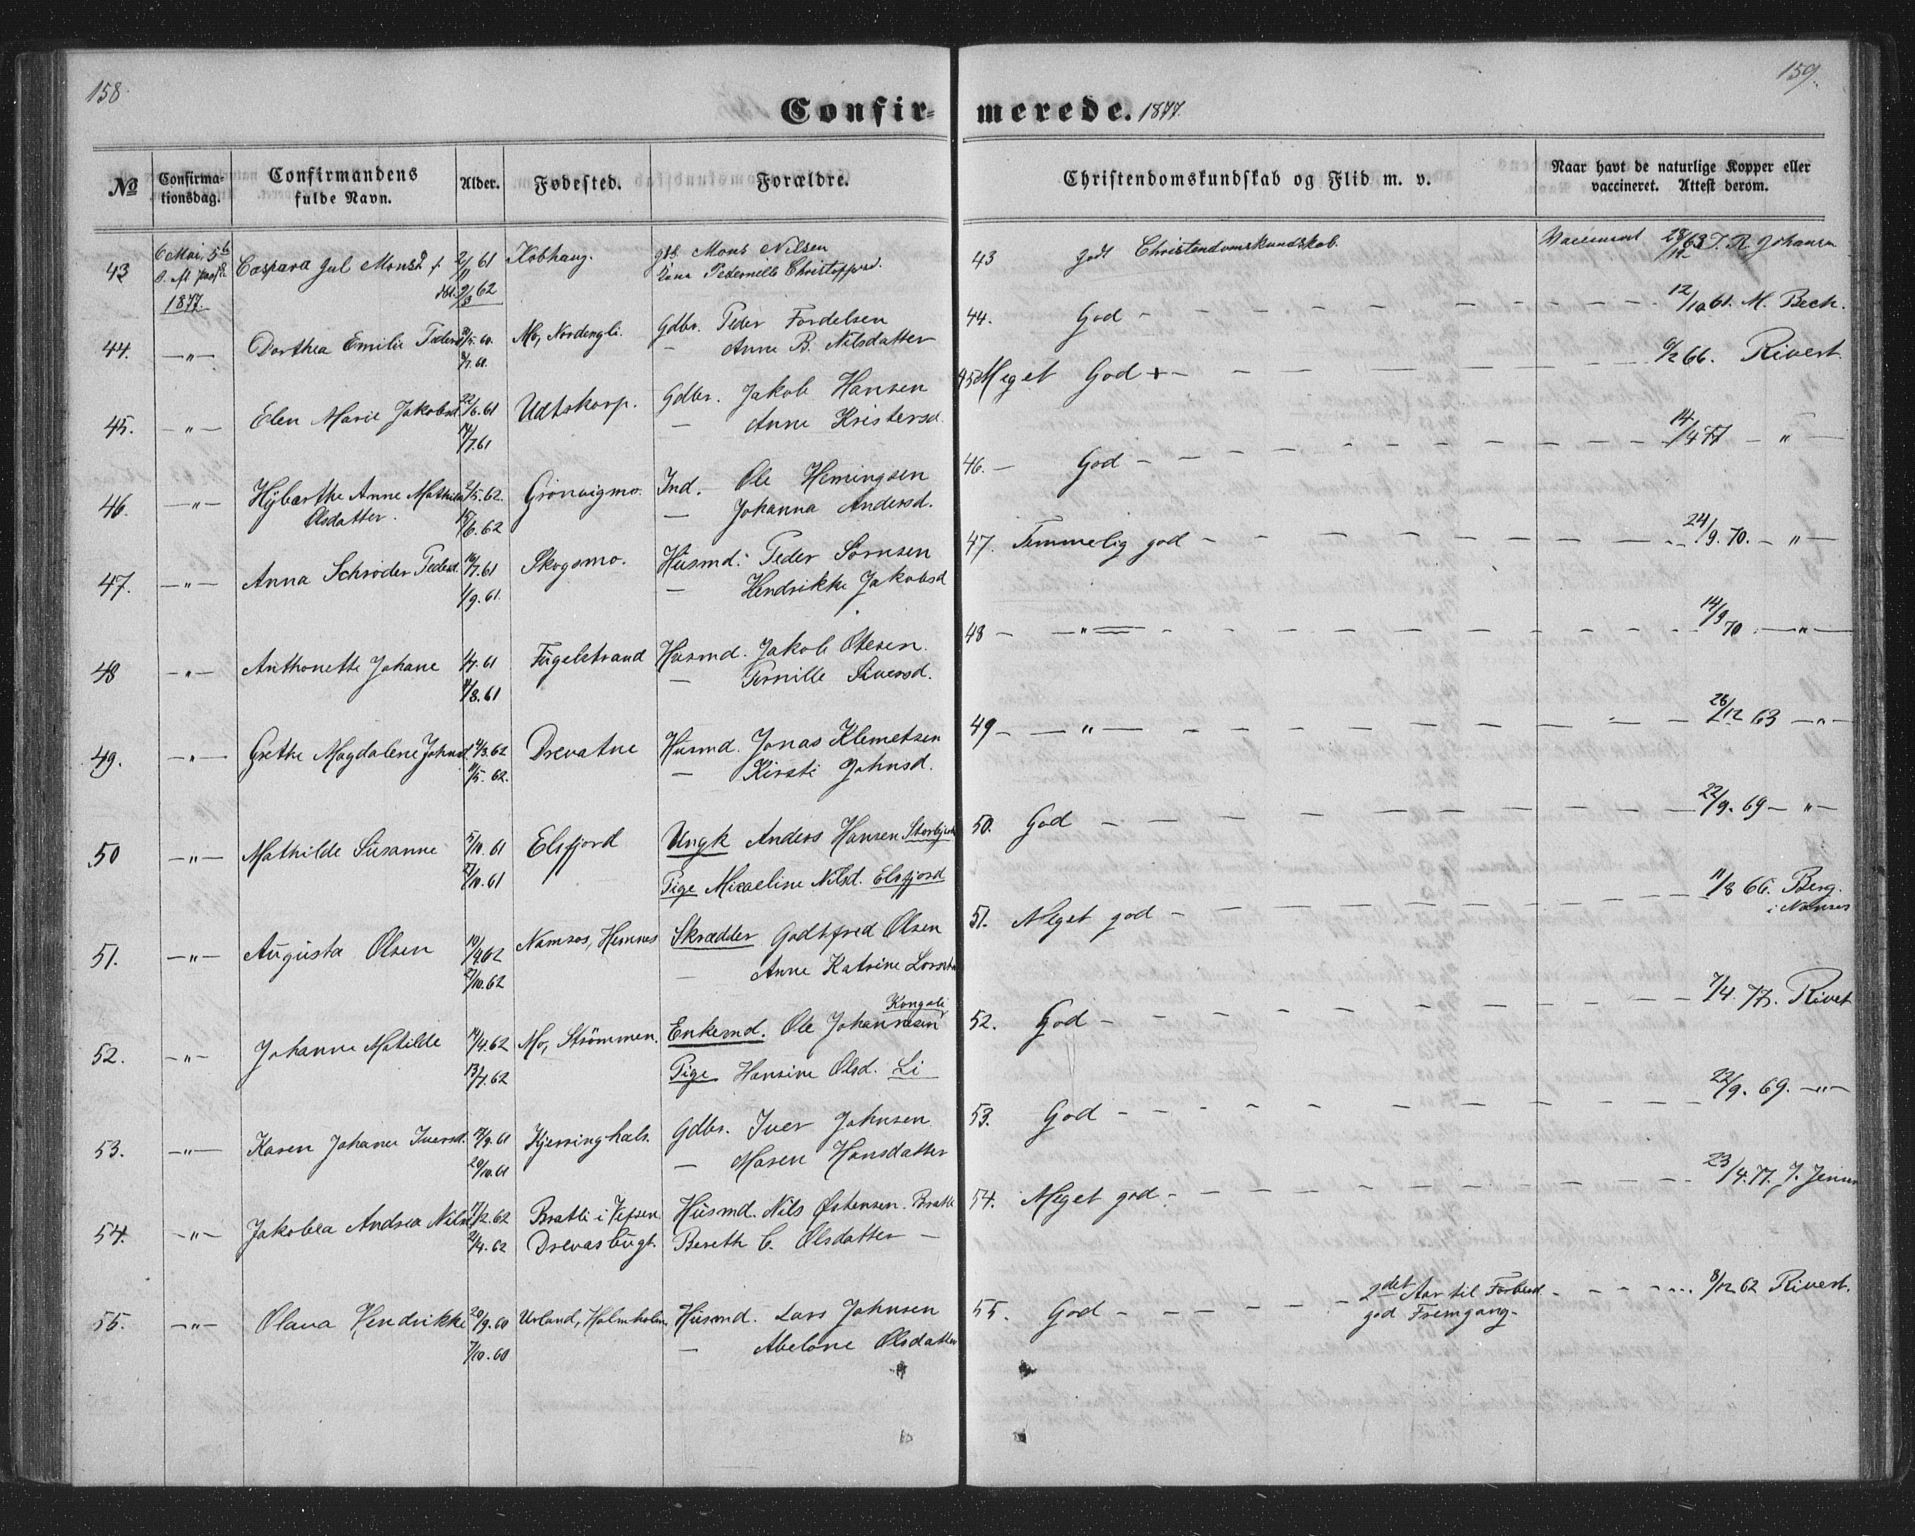 158
159.
Confir-merede. 1877.
No Confirmationsdag. Confirmandens fulde Navn. Alder. Fødested. Forældre. Christendomskundskab og Flid m. v. Naar havt de naturlige Kopper eller vaccineret. Attest derom.
43 6 Mai, 5te 1877. Caspara Jul Monsd f 2/11 61 Kobhaug. Mons Nilsen
døbt 2/3 62 Pedernelle
43 God Christendomskundskab. 63 Johansen
44. —"— Dorthea Emilie Mo, Nordengli. Gdbr. Peder Fordelsen
— Anne B. Nilsdatter
44. God 12/10 61. M. Bech.
45. —"— Elen Marie Jakobsd 22/6.61 Udtskarp. Gdbr. Jakob Hansen
17/7.61 — Anne Kristersd.
45 Meget God + 6/2 66. Rivert
46. —"— Hybarthe Anne Mathilde 2/5.62. Grønvigmo. Ind. Ole Hemingsen
Olsdatter. 15/6.62 — Johanna Andersd.
46. — God 14/4 77 — " —
47. —"— Anna Schrøder Pedersd. 16/7.61 Skogsmo. Husmd. Peder Sørnsen
1/9.61. — Hendrikke Jakobsd
47. Temmelig god 24/9. 70. — " —
48 —"— Anthonette Johane 1/7.61 Fugelstrand Husmd. Jakob Olesen.
4/8.61 — Pernille Siversd.
48 — —"— 14/9 70. —"—
49. —"— Grethe Magdalene Johnsd. 4/3.62 Drevatne Husmd. Jonas Klemetsen
11/5.62. — Kirsti Johnsd.
49 — —"— 26/12 63 —"—
50 —"— Mathilde Susanne 5/10.61 Elsfjord Ungk Anders Hansen
27/10.61 Pige Micaeline Nilsd. Elsfjord
50. God 22/9. 69 — " —
51. —"— Augusta Olsen 10/9 62 Namsos, Hemnes Skrædder Godtfred Olsen
2/10.62 — Anne Katrine
51. Meget god 11/8 66. Berg.
i Namsos
52. —"— Johanne Matilde 14/4.62 Mo, Strømmen. Enkemd. Ole Johannesen Kongsli
13/7.62 Pige Hansine Olsd. Li
52. God 7/4. 77. Rivert
53. —"— Karen Johane Iversd. 4/9.61 Kjerringhals. Gdbr. Iver Johnsen
20/10.61 — Maren Hansdatter
53. God 22/9. 69. —"—
54. —"— Jakobea Andrea Nilsd 17/2.62 Bratli i Vefsen Husmd. Nils Østensen. Bratli
2/4.62 Drevasbugt. Bereth C. Olsdatter —
54. Meget god. 23/4.77. J. Jensen
55. —"— Olava Hendrikke 20/9.60 Urland, Holmholm, Husmd. Lars Johnsen
7/10.60 — Abelone Olsdatter
55. God 2det Aar til Forbered. 8/12 62 Rivert.
god Fremgang.